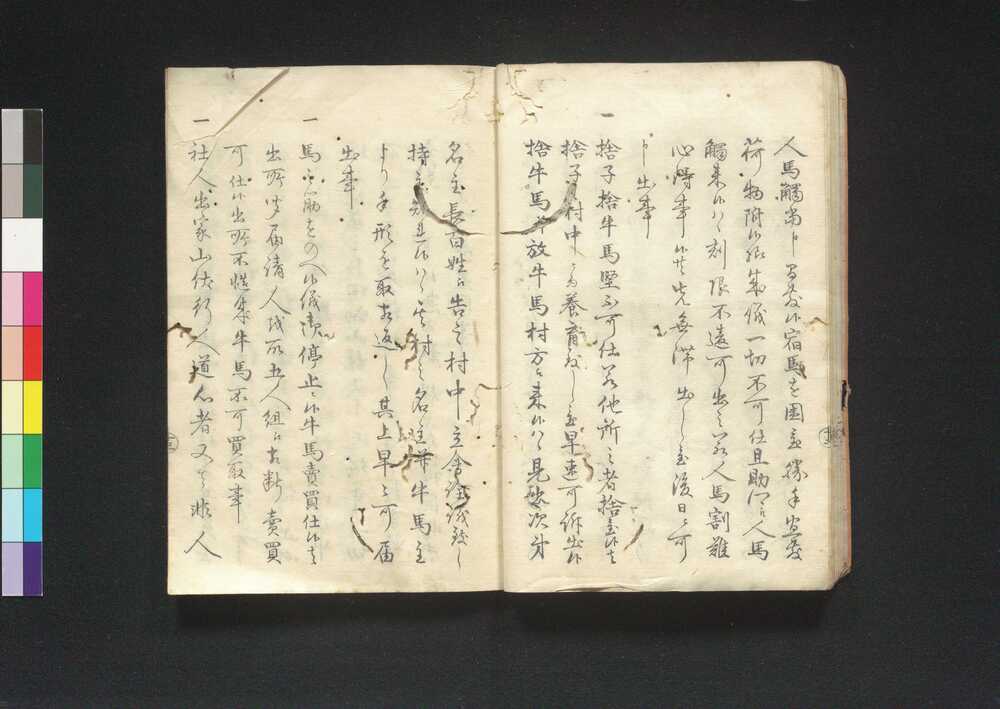 人馬觸當申間敷候宿馬を圍置勝手宜敷
荷物附候族 儀一切不可仕且助郷人馬
觸来候ハヽ刻限不遠可出之若人馬割難
心得事候共先無滞出し置後日ニ可
申出事
一 捨子捨牛馬堅不可仕若他所之者捨置候ハ
捨子ハ村中ニ而養育致し置早速可訴出候
捨牛馬并放牛馬村方ニ来候ハヽ見改次第
名主長百姓江告之村中立合詮議致し
持主知れ候ハヽ其村之名主并牛馬主
より手形を取相返し其上早々可届
出事
一 馬之筋をのへ候儀御停止ニ候牛馬賣買仕候ハ
出所承届請人取之五人組江相断賣買
可仕候出所不慥成牛馬不可買取事
一 社人出家山伏行人道心者又は非人